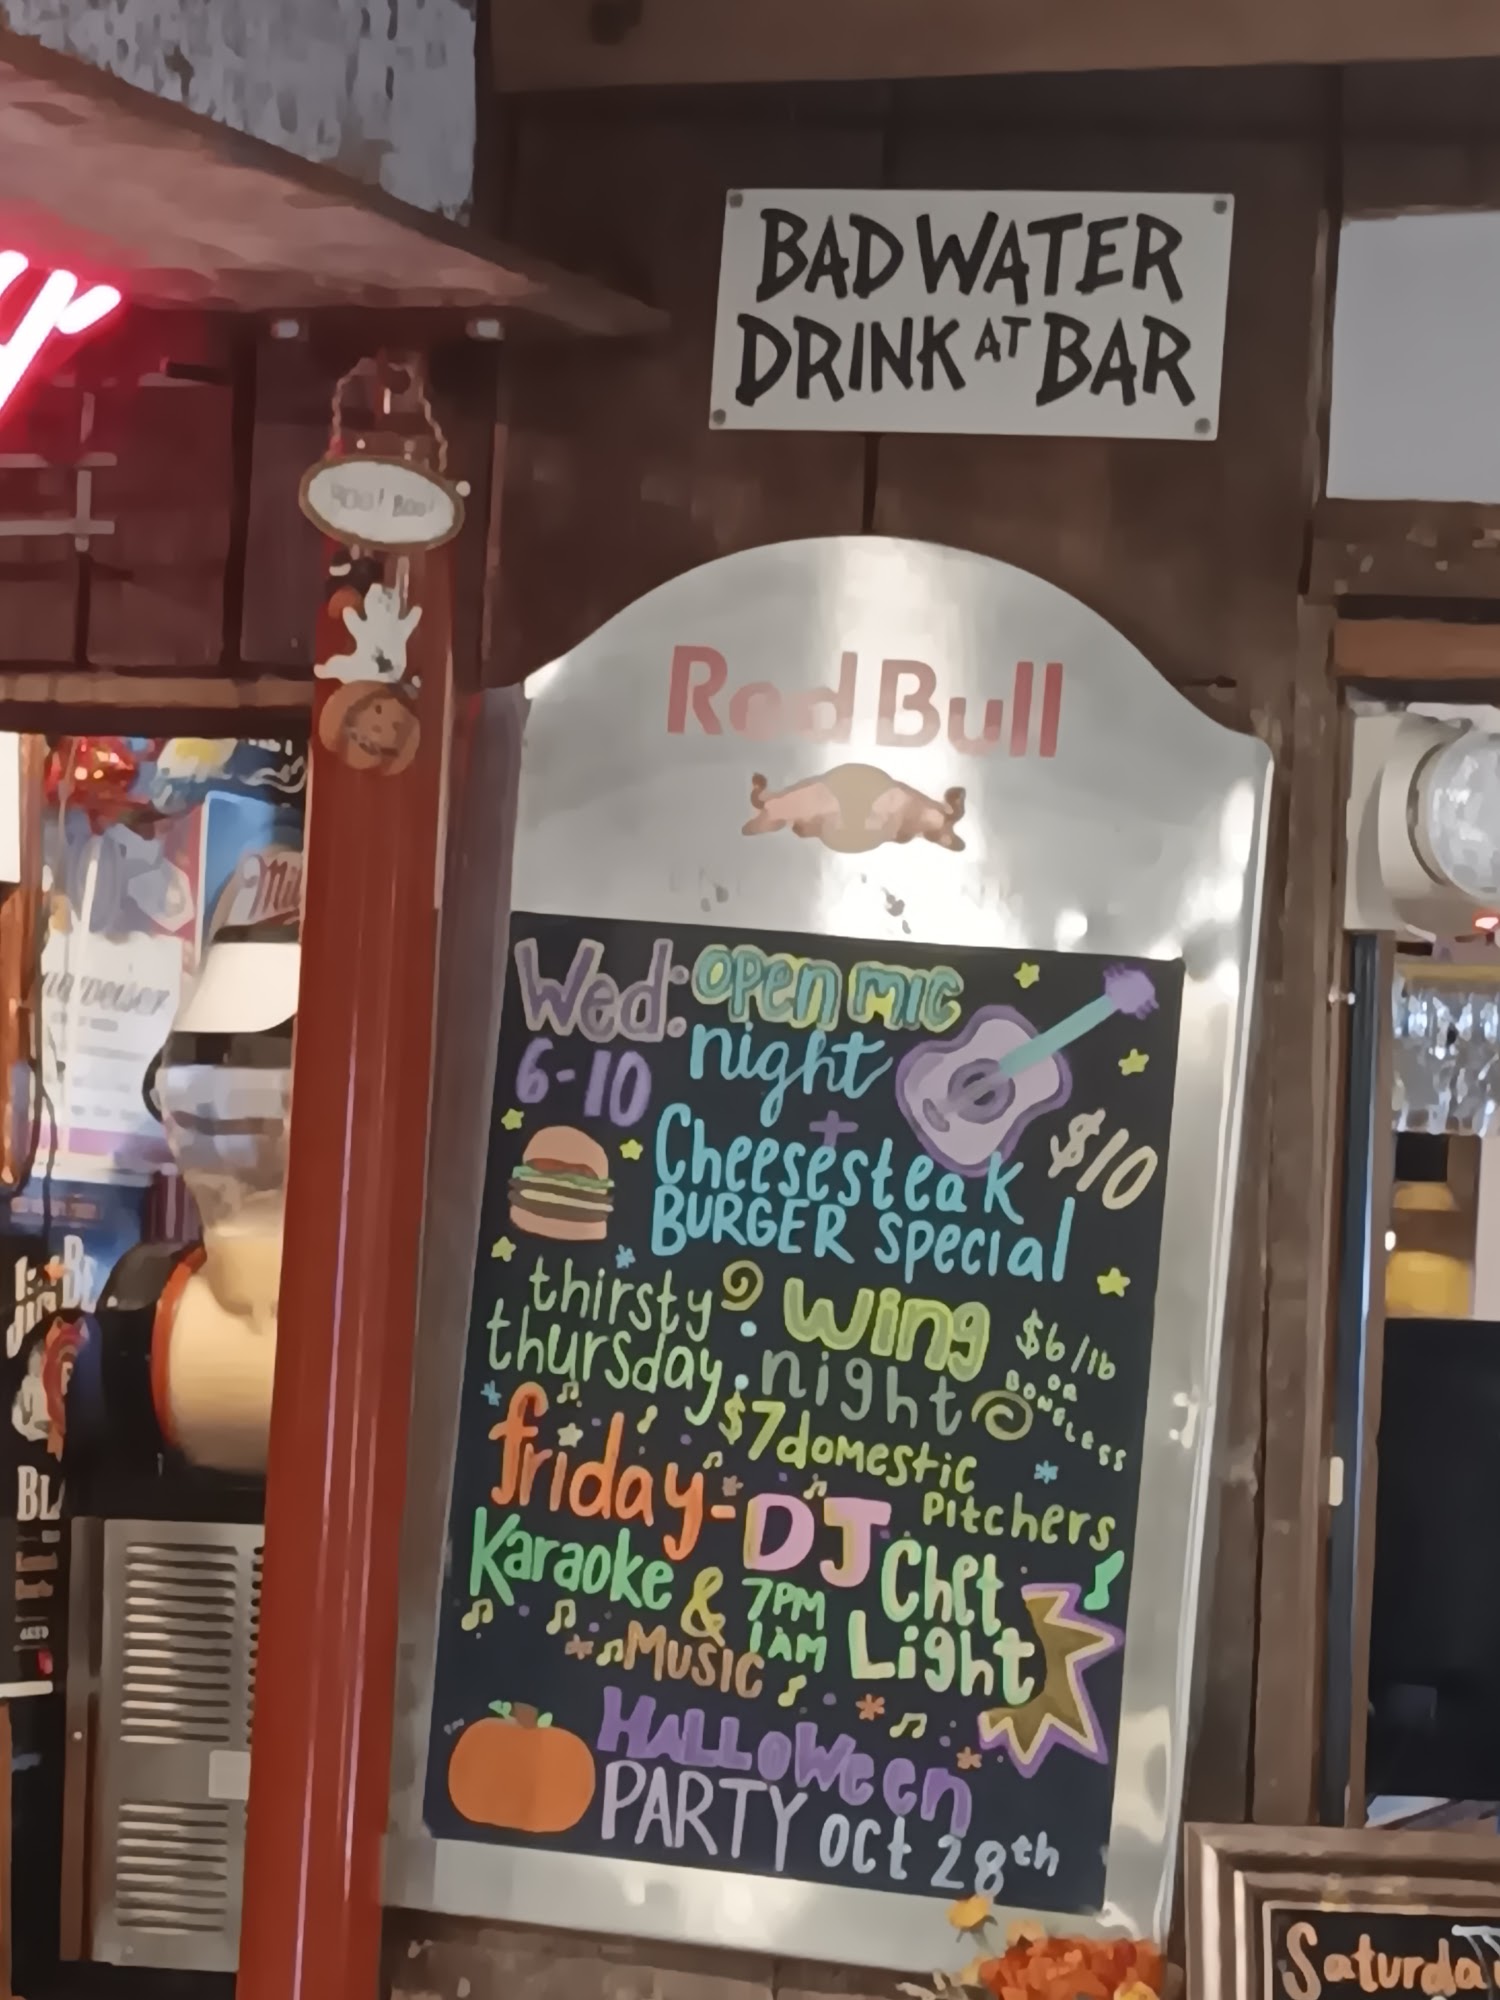 BAD WATER
DRINK AT BAR
Boo!
Red Bull
Wed: open mic
6-10 night
+
Cheesesteak $10
BURGER special
thirsty wing $6/lb
thursday: night OR BONELESS
$7 domestic
Pitchers
friday- DJ Chet
Karaoke & 7PM Light
1AM
MUSIC
HALLOWeen
PARTY oct 28th
Saturda